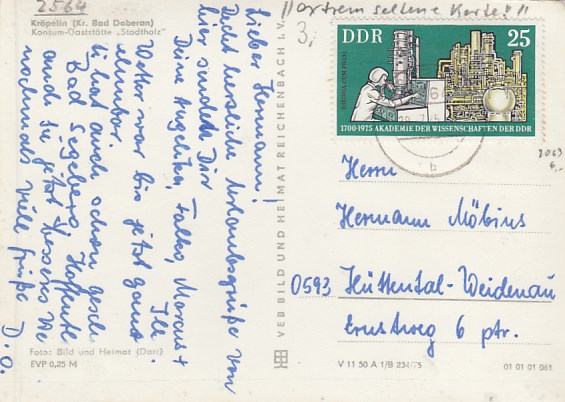 2564
"extrem seltene Karte!"
Kröpelin (Kr. Bad Doberan)
Konsum-Gaststätte „Stadtholz"
3,
Lieber Hermann!
Recht herzliche Urlaubsgrüße von
hier sendet Dir
Deine Angelika, Falko, Marcus +
Wetter war bis jetzt ganz
hat auch schon geschr.
Bad Segeberg. Hoffentl.
auch für jetzt besseres We
nochmals viele Grüße
D. O.
Foto: Bild und Heimat (Darr)
EVP 0,25 M
VEB BILD UND HEIMAT REICHENBACH I. V.
DDR 25
1700-1975 AKADEMIE DER WISSENSCHAFTEN DER DDR
b
2063
6,-
Herrn
Hermann Möbius
0593 Hüttental-Weidenau
Ernstweg 6 ptr.
V 11 50 A 1/B 234/75
01 01 01 061